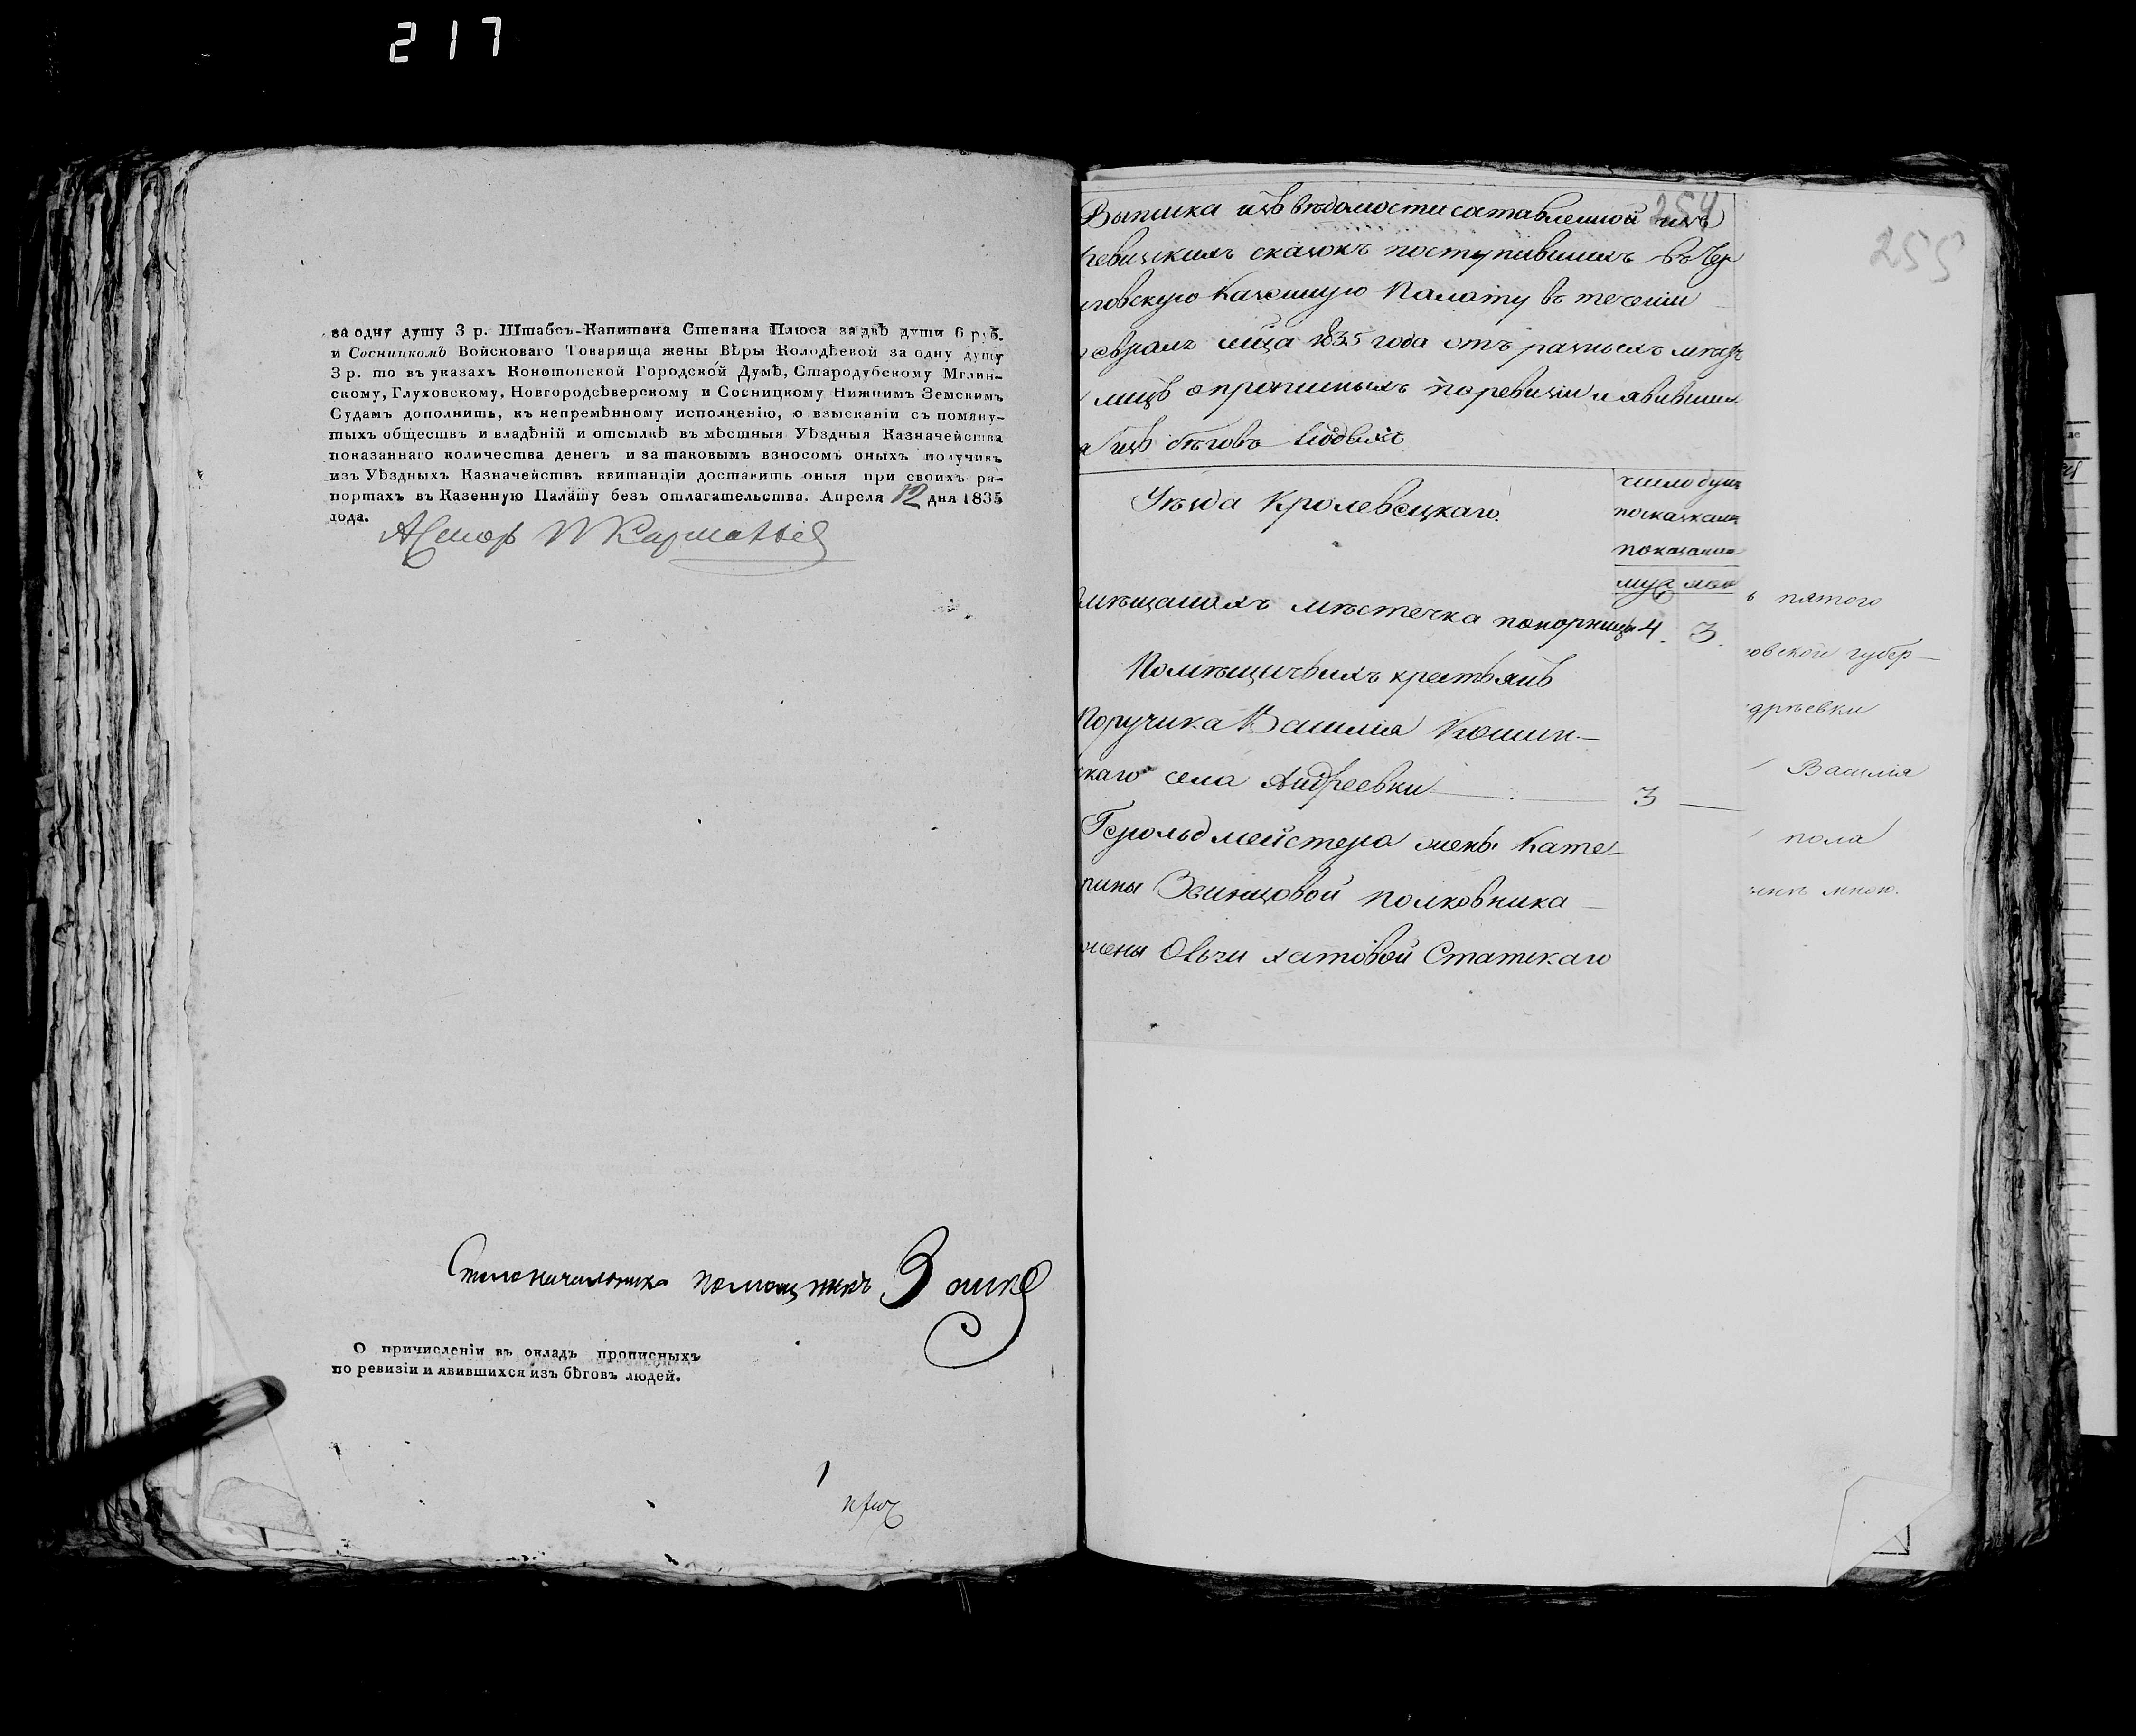 217
за одну душу 3 р. Штабсъ-Капитана Степана Плюса за двѣ души 6 руб.
и Сосницкомъ Войсковаго Товарища жены Вѣры Колодѣевой за одну душу
3 р. то въ указахъ Конотопской Городской Думѣ, Стародубскому Мглин-
скому, Глуховскому, Новгородсѣверскому и Сосницкому Нижнимъ Земскимъ
Судамъ дополнить, къ непремѣнному исполненію, о взысканіи съ помяну-
тыхъ обществъ и владѣній и отсылкѣ въ мѣстныя Уѣздныя Казначейства
показаннаго количества денегъ и за таковымъ взносомъ оныхъ получивъ
изъ Уѣздныхъ Казначействъ квитанціи доставить оныя при своихъ ра-
портахъ въ Казенную Палату безъ отлагательства. Апреля 12 дня 1835
года.
Столоначальника помощникъ
О причисленіи въ окладъ прописныхъ
по ревизіи и явившихся изъ бѣговъ людей.
254
255
Выписка изъ вѣдомости составленной изъ
ревизскихъ сказокъ поступившихъ въ Чер
иговскую Казенную Палату въ теченіи
евраля мца 1835 года отъ разныхъ мѣстъ
лицъ о прописныхъ по ревизіи и явивших
изъ бѣговъ людяхъ
Уѣзда Кролевецкаго.
число душъ
по сказкамъ
показании
муж жен
мѣщанахъ мѣстечка понорницы 4. 3.
Помѣщичьихъ крестьянъ
Поручика Василія Кошин-
скаго села Андреевки 3 —
Герольдмейстера жены Кате-
рины Звинцовой полковника
жены Статскаго
ъ пятого
овской губер-
дрѣевки
Василія
пола
мною.